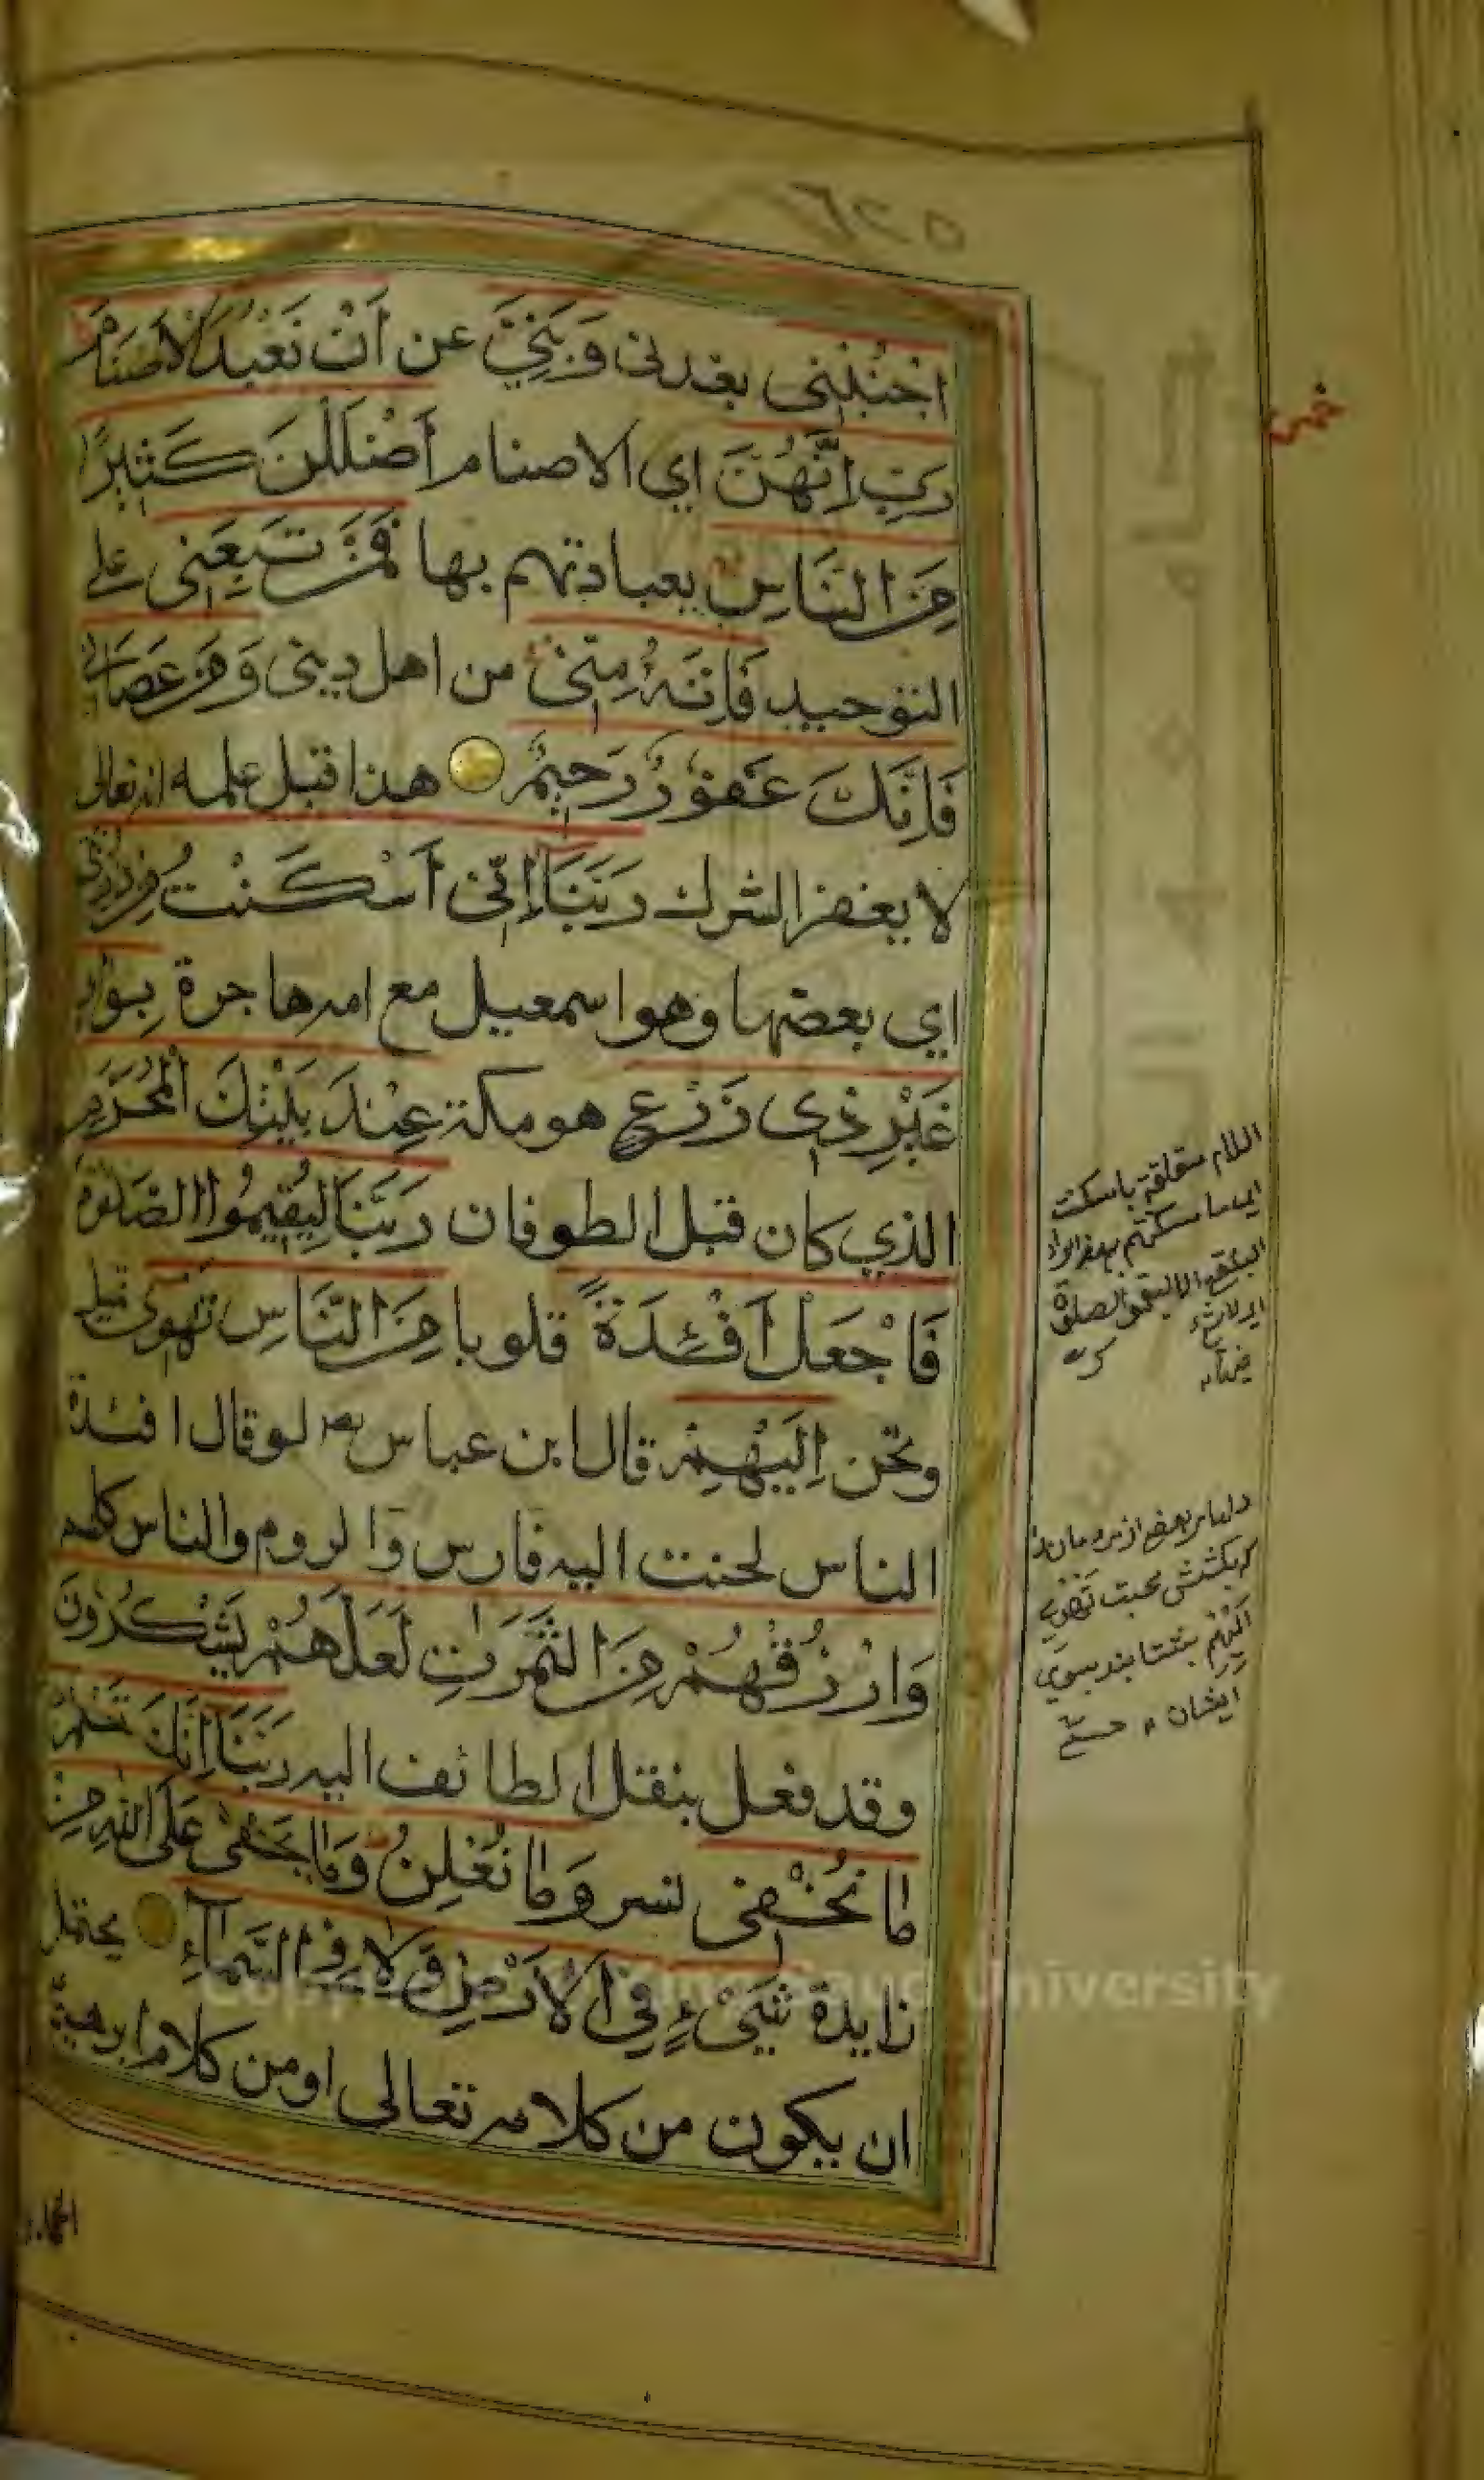 ٦٢٥
اجْنُبْنِى بعدنى وَبَنِىَّ عن اَنْ نَعْبُدَ الْاَصْنَامَ
رَبِّ اِنَّهُنَّ اي الاصنام اَضْلَلْنَ كَثِيرًا
مِنَ النَّاسِ بعبادتهم بها فَمَنْ تَبِعَنِى على
التوحيد فَاِنَّهُ مِنِّى من اهل دينى وَمَنْ عَصَانِى
فَاِنَّكَ غَفُوْرٌ رَحِيْمٌ هذا قبل علمه انه تعالى
لا يغفر الشرك رَبَّنَا اِنِّى اَسْكَنْتُ مِنْ ذُرِّيَّتِى
اي بعضها وهو اسمعيل مع امه هاجرة بِوَادٍ
غَيْرِ ذِى زَرْعٍ هو مكة عِنْدَ بَيْتِكَ الْمُحَرَّمِ
الذي كان قبل الطوفان رَبَّنَا لِيُقِيمُوا الصَّلٰوةَ
فَاجْعَلْ اَفْئِدَةً قلوبا مِنَ النَّاسِ تَهْوِى تميل
وتحن اِلَيْهِمْ قال ابن عباس رضـ لو قال افئدة
الناس لحنت اليه فارس والروم والناس كلهم
وَارْزُقْهُمْ مِنَ الثَّمَرٰتِ لَعَلَّهُمْ يَشْكُرُوْنَ
وقد فعل بنقل الطائف اليه رَبَّنَا اِنَّكَ تَعْلَمُ
مَا نُخْفِى نسر وَمَا نُعْلِنُ وَمَا يَخْفٰى عَلَى اللّٰهِ مِنْ
زايدة شَىْءٍ فِى الْاَرْضِ وَلَا فِى السَّمَآءِ يحتمل
ان يكون من كلامه تعالى او من كلام ابرهيم
اللام متعلقة باسكنت
اي ما اسكنتهم بهذا الواد
البلقع الا ليقيموا الصلوة
دلهاء بعضى از مردمان را
كه بكشش محبت تَهْوِي
اِلَيْهِمْ بشتابند بسوي
ايشان
University